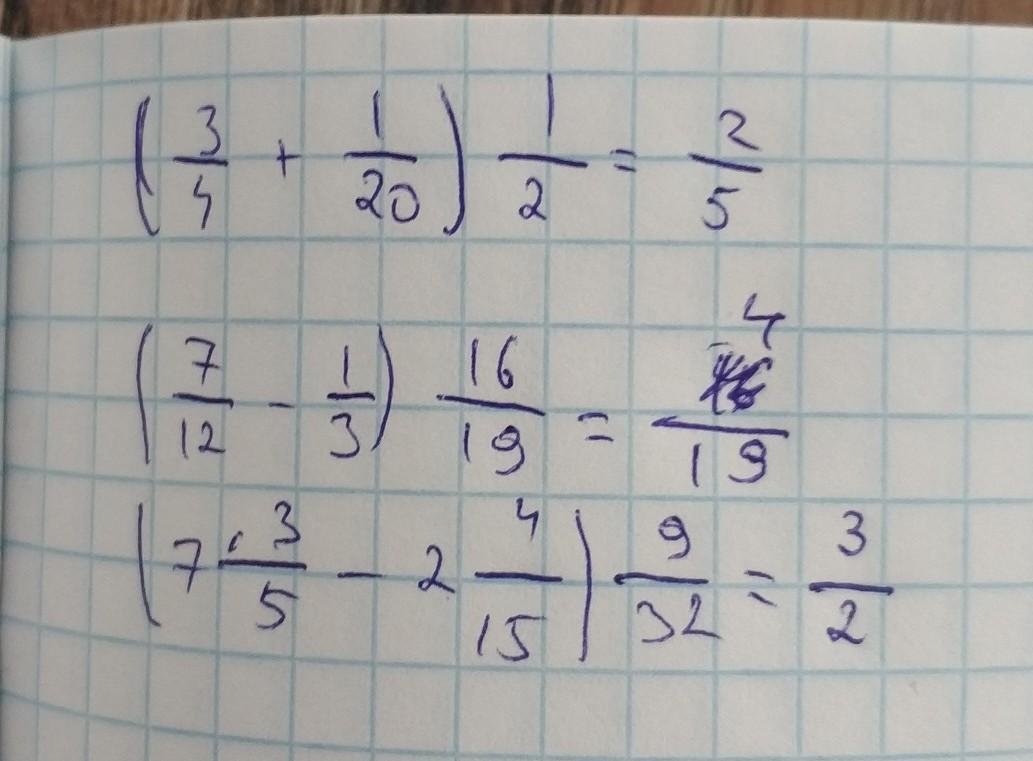 (3/4 + 1/20) 1/2 = 2/5
(7/12 - 1/3) 16/19 = 4/19
(7 3/5 - 2 4/15) 9/32 = 3/2